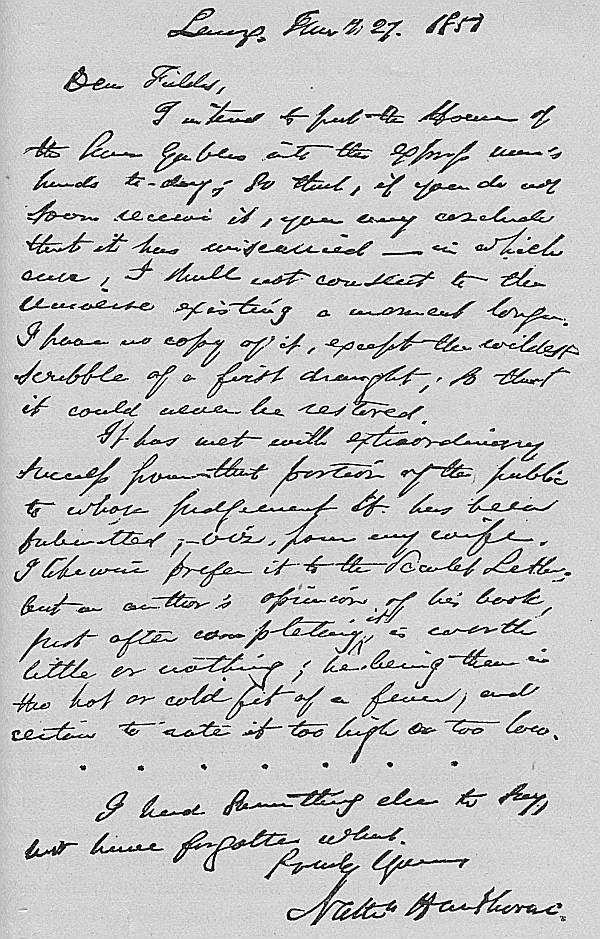 Lenox, Jany 27. 1851
Dear Fields,
I intend to put the House of
the Seven Gables into the express man's
hands to-day; so that, if you do not
soon receive it, you may conclude
that it has miscarried — in which
case, I shall not consent to the
universe existing a moment longer.
I have no copy of it, except the wildest
scribble of a first draught; so that
it could never be restored.
It has met with extraordinary
success from that portion of the public
to whose judgement it has been
submitted; — viz, from my wife.
I likewise prefer it to the Scarlet Letter;
but an author's opinion of his book,
just after completing it, is worth
little or nothing; he being then in
the hot or cold fit of a fever, and
certain to rate it too high or too low.
. . . . . . .
I had something else to say,
but have forgotten what.
Truly Yours
Nathl Hawthorne.